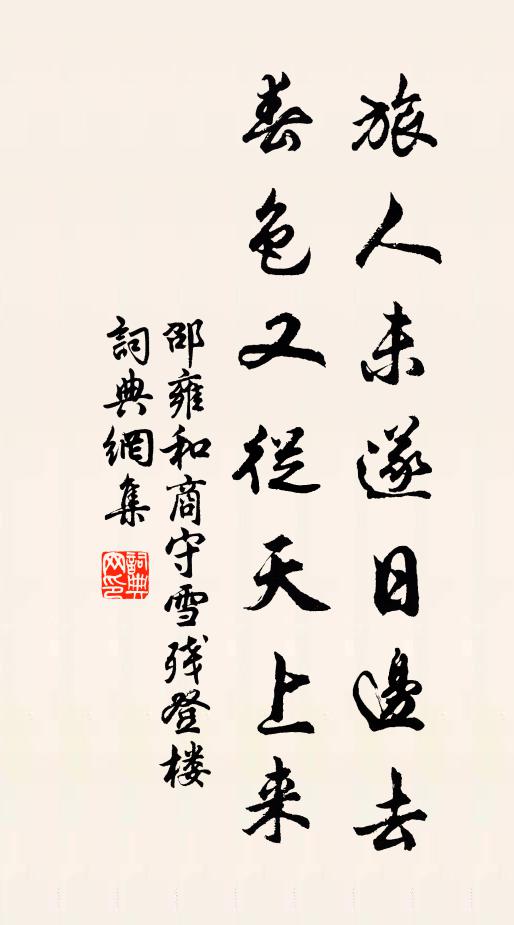 旅人未遂日邊去
春色又從天上来
邵雍和商守雪残登楼
詞典網集
詞典網印